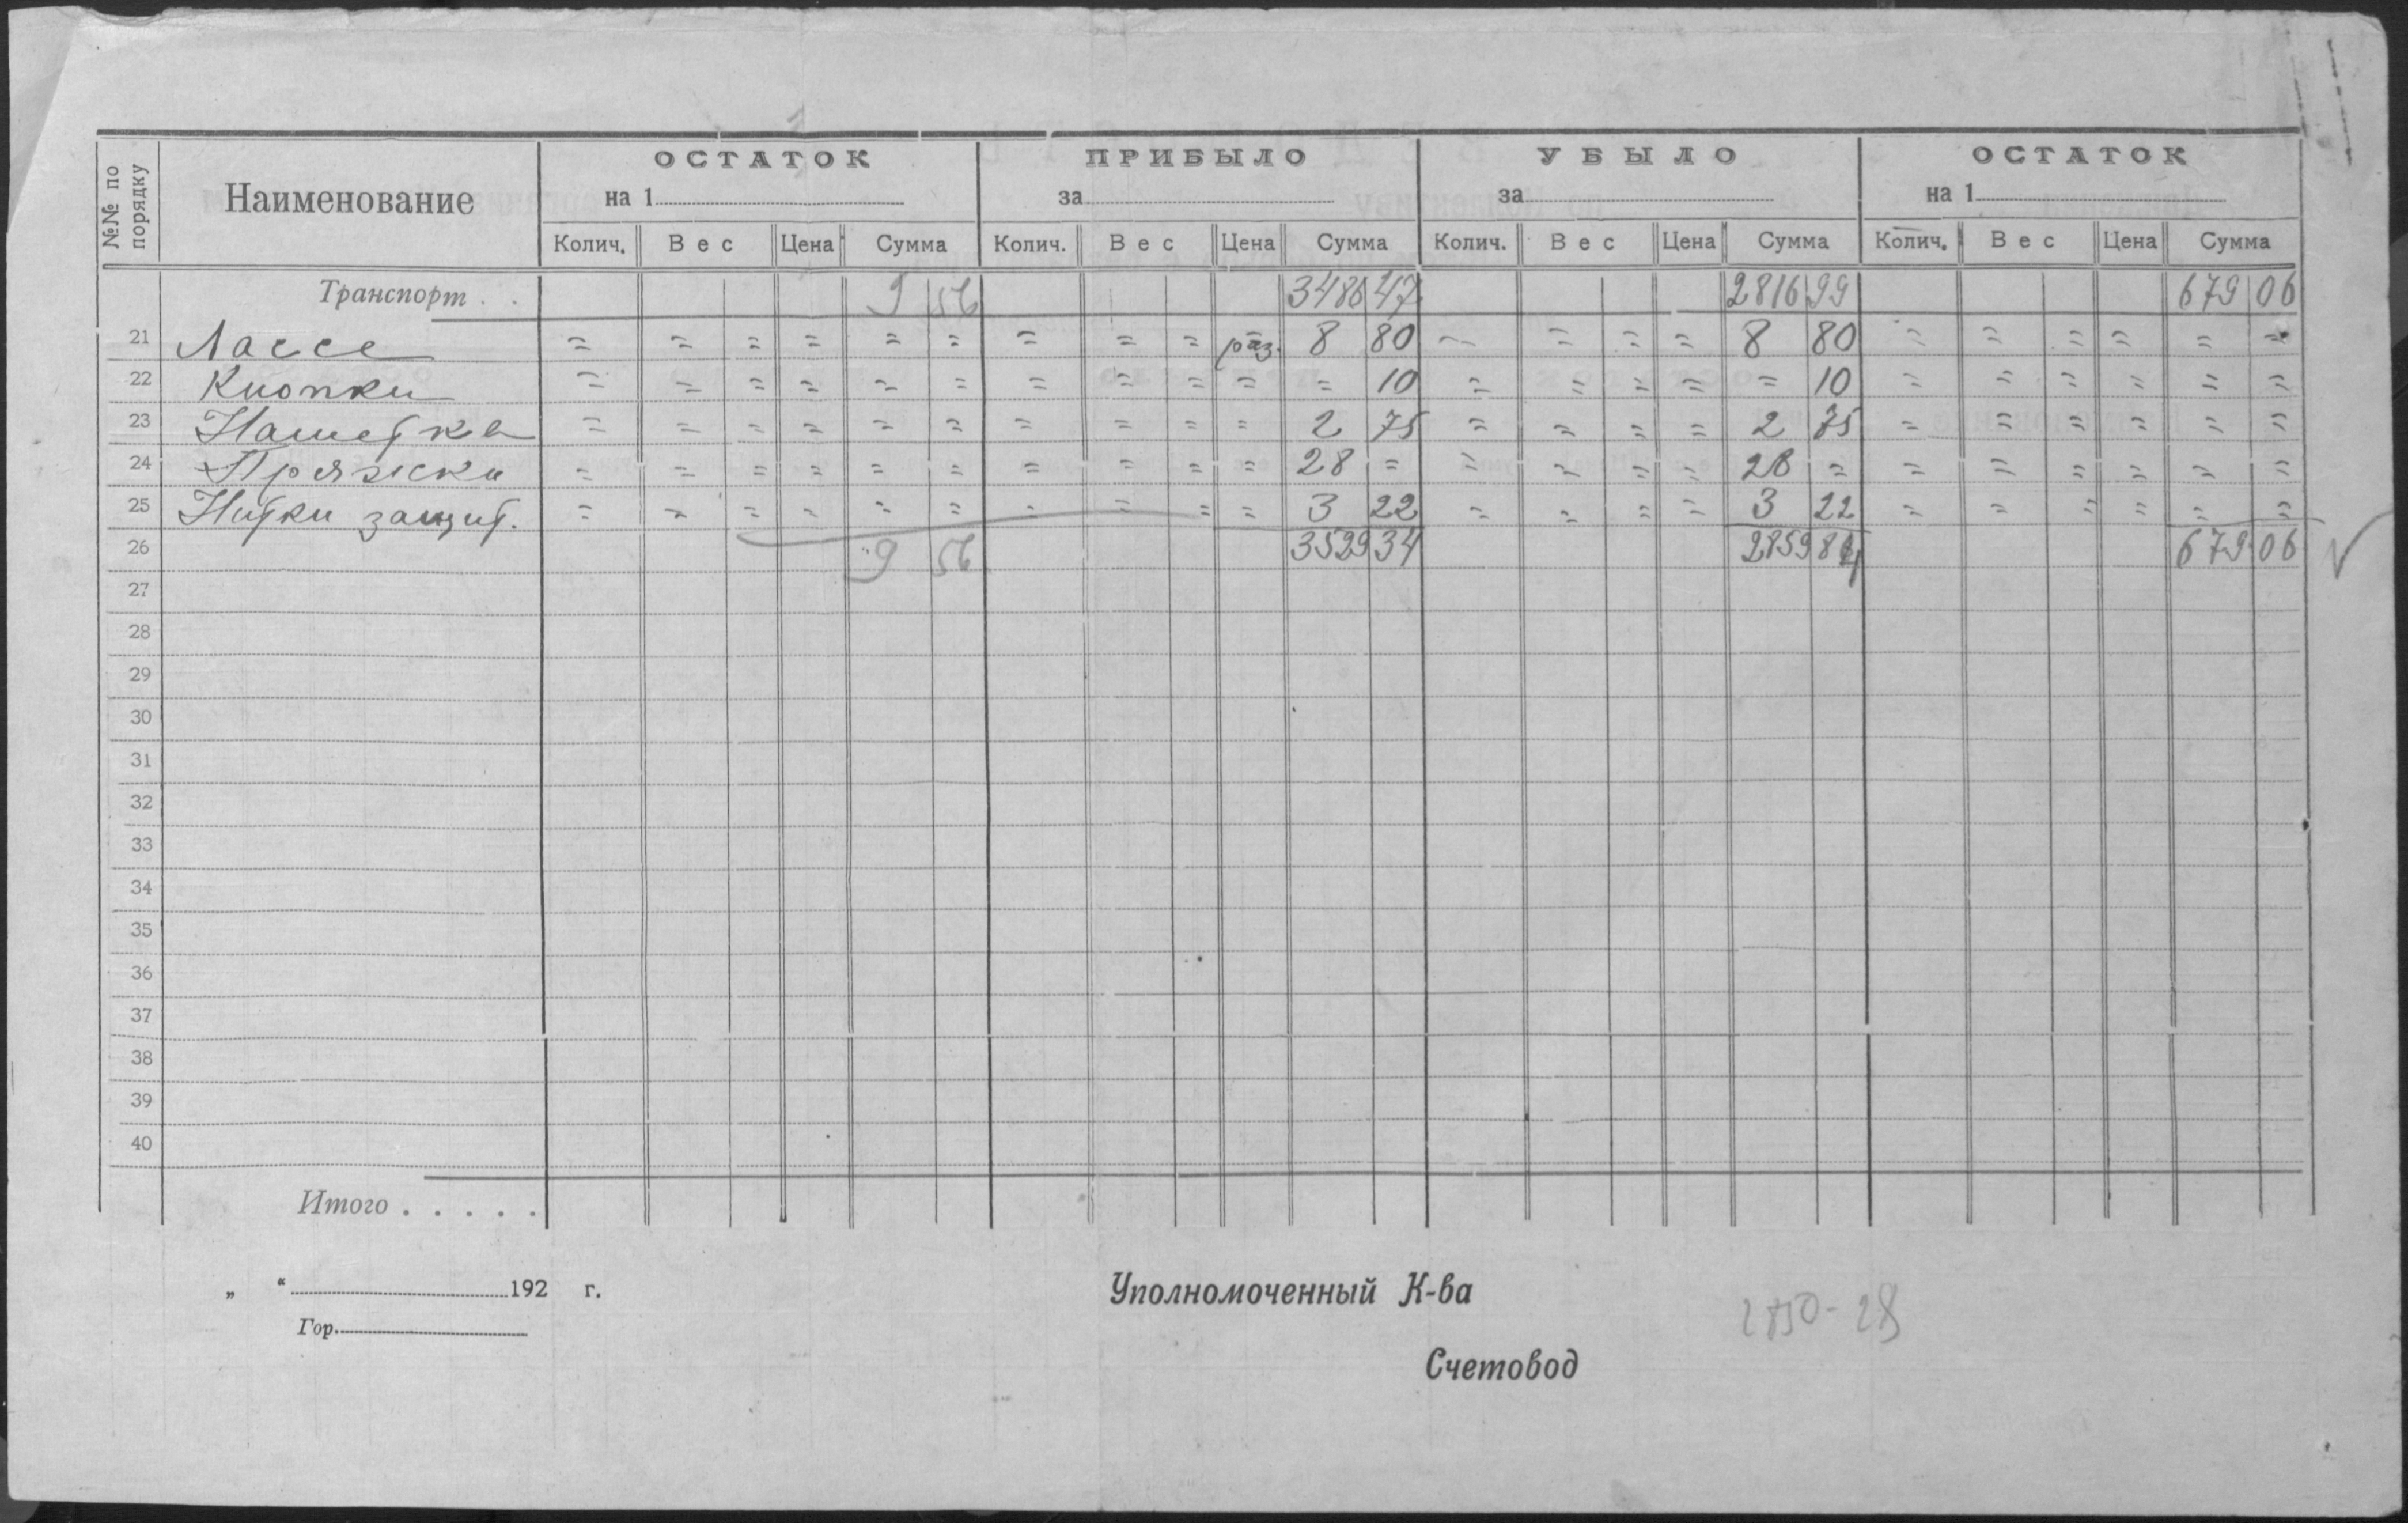 №№ по порядку Наименование ОСТАТОК ПРИБЫЛО УБЫЛО ОСТАТОК
на 1 за за на 1
Колич. Вес Цена Сумма Колич. Вес Цена Сумма Колич. Вес Цена Сумма Колич. Вес Цена Сумма
Транспорт . . 9 56 3486 47 2816 99 679 06
21 Лассе = = = = = = = = = раз. 8 80 = = = = 8 80 = = = = = =
22 Кнопки = = = = = = = = = = = 10 = = = = = 10 = = = = = =
23 = = = = = = = = = = 2 75 = = = = 2 75 = = = = = =
24 Пряжки = = = = = = = = = = 28 = = = = = 28 = = = = = = =
25 Нитки защит. = = = = = = = = = = 3 22 = = = = 3 22 = = = = = =
26 9 56 3529 34 2859 84 679 06
27
28
29
30
31
32
33
34
35
36
37
38
39
40
Итого . . . . .
„ “ 192 г.
Гор.
Уполномоченный К-ва
2850-28
Счетовод